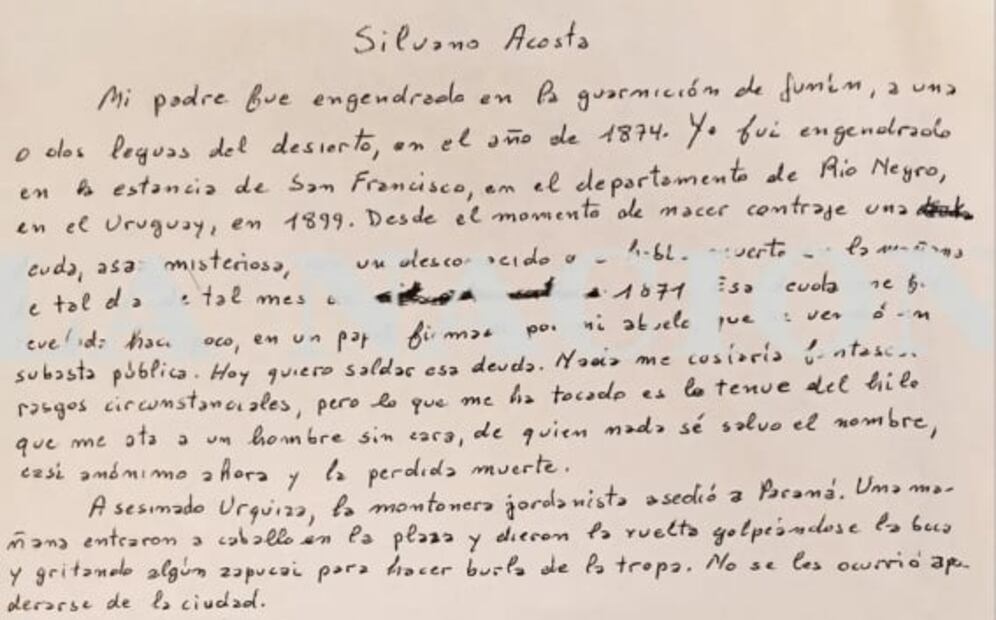 Silvano Acosta
Mi padre fue engendrado en la guarnición de Junín, a una
o dos leguas del desierto, en el año de 1874. Yo fui engendrado
en la estancia de San Francisco, en el departamento de Río Negro,
en el Uruguay, en 1899. Desde el momento de nacer contraje una
euda, asaz misteriosa, un desconocido la mañana
e tal d a e tal mes 1871 Esa euda me
hace oco, en un pap firmad por mi abuelo que en
subasta pública. Hoy quiero saldar esa deuda. Nada me costaría
rasgos circunstanciales, pero lo que me ha tocado es lo tenue del hilo
que me ata a un hombre sin cara, de quien nada sé salvo el nombre,
casi anónimo ahora y la perdida muerte.
Asesinado Urquiza, la montonera jordanista asedió a Paraná. Una ma-
ñana entraron a caballo en la plaza y dieron la vuelta golpeándose la boca
y gritando algún zapucai para hacer burla de la tropa. No se les ocurrió apo-
derarse de la ciudad.
LA NACION